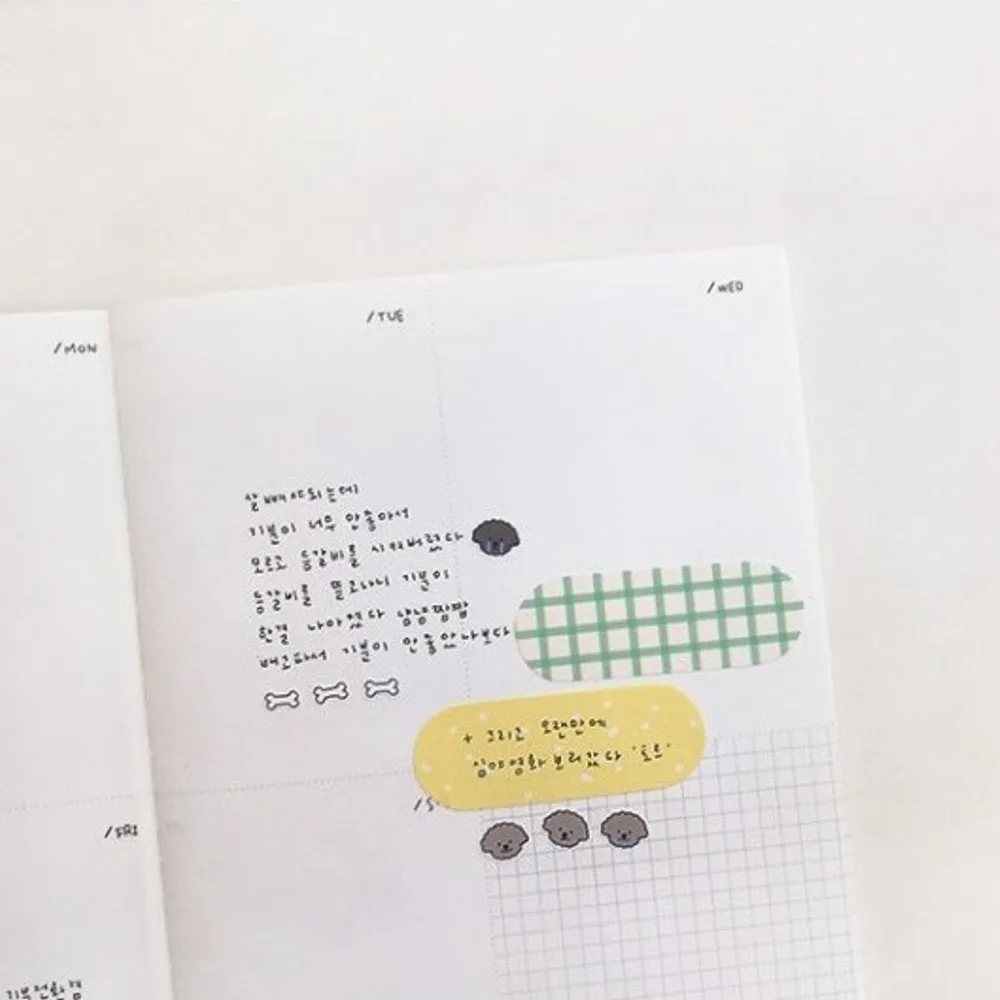 /MON
/TUE
/WED
살 빼야되는데
기분이 너무 안좋아서
모르고 등갈비를 시켜버렸다
등갈비를 뜯고나니 기분이
한결 나아졌다 냠냠쩝쩝
배고파서 기분이 안좋았나보다
+ 그리고 오랜만에
심야영화 보러갔다
/FRI
/S
기분전환겸